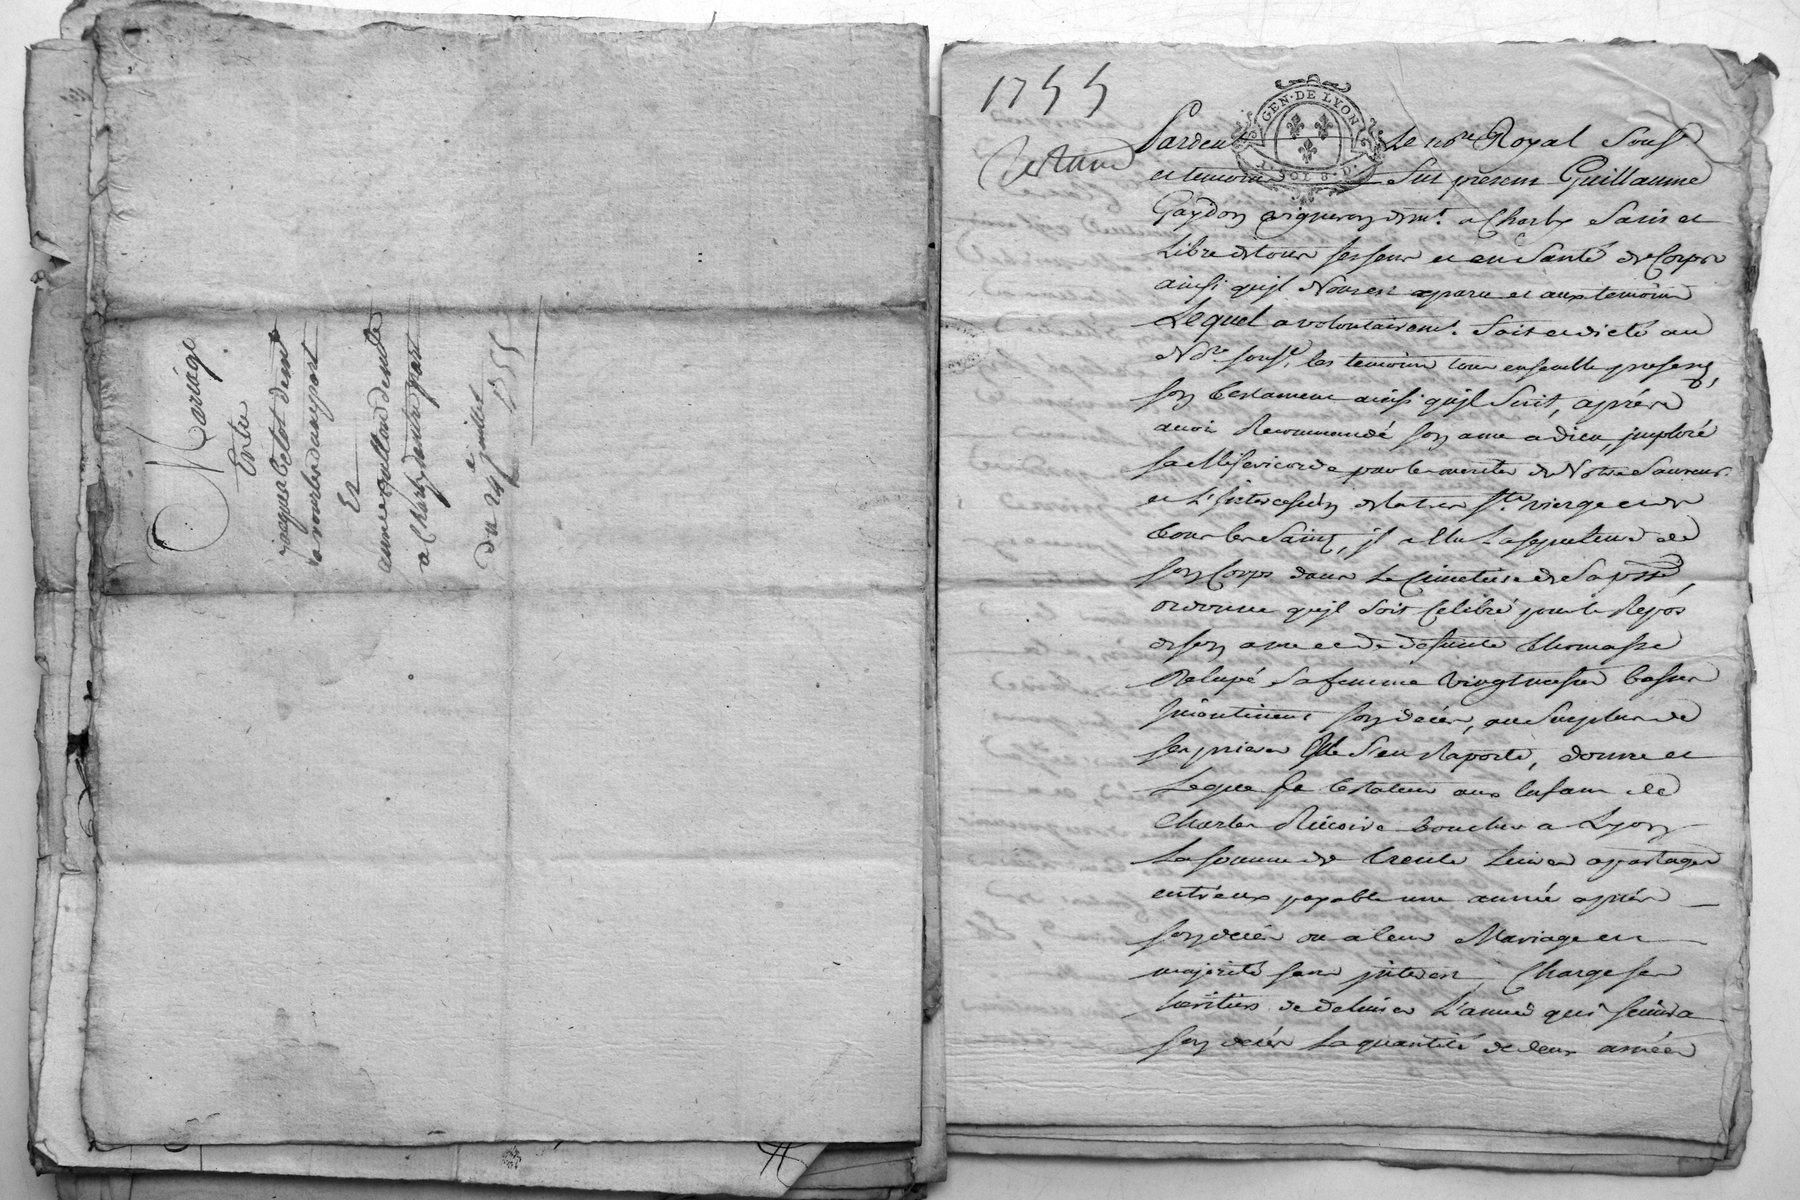 Mariage
Entre
jacques Belot demt
a nombre dune part
Et
anne coullon demte
a Charly dautre part
du 29e juillet
1755
1755
Testamt
GEN·DE LYON
1·SOL 8·D·
Pardevt Le nore Royal Sousé
et temoins fut present Guillaume
Gaydon vigneron demt a Charly Sain et
Libre de tous ses sens et en Santé de Corps
ainsi qu'jl Nous est aparu et aux temoins
Lequel a volontairemt fait et dicté au
Nore sousé, les temoins tous ensemble presens,
son testament ainsi qu'jl Suit, aprés
avoir Recommandé son ame a dieu, jmploré
sa Misericorde par les merites de Notre Sauveur
et L'jntercession de la tres Ste vierge et de
tous les Saints, jl a Elu La sepulture de
son Corps dans Le Cimetiere de Sa psse,
ordonne qu'jl soit Celebré pour le Repos
de son ame et de defunte thomasse
Relupé Sa femme vingt messes basses
jncontinent son decés, au Surplus de
ses prieres Elle s'en Raporte, donne et
Legue Le testateur aux Enfans de
Charles boucher a Lyon
La somme de trente Livres a partager
entr'eux payable une année aprés
son decés ou a leur Mariage et
majorité sans jnterest, Charge ses
heritiers de delivrer L'année qui suivra
son decés La quantité de deux années